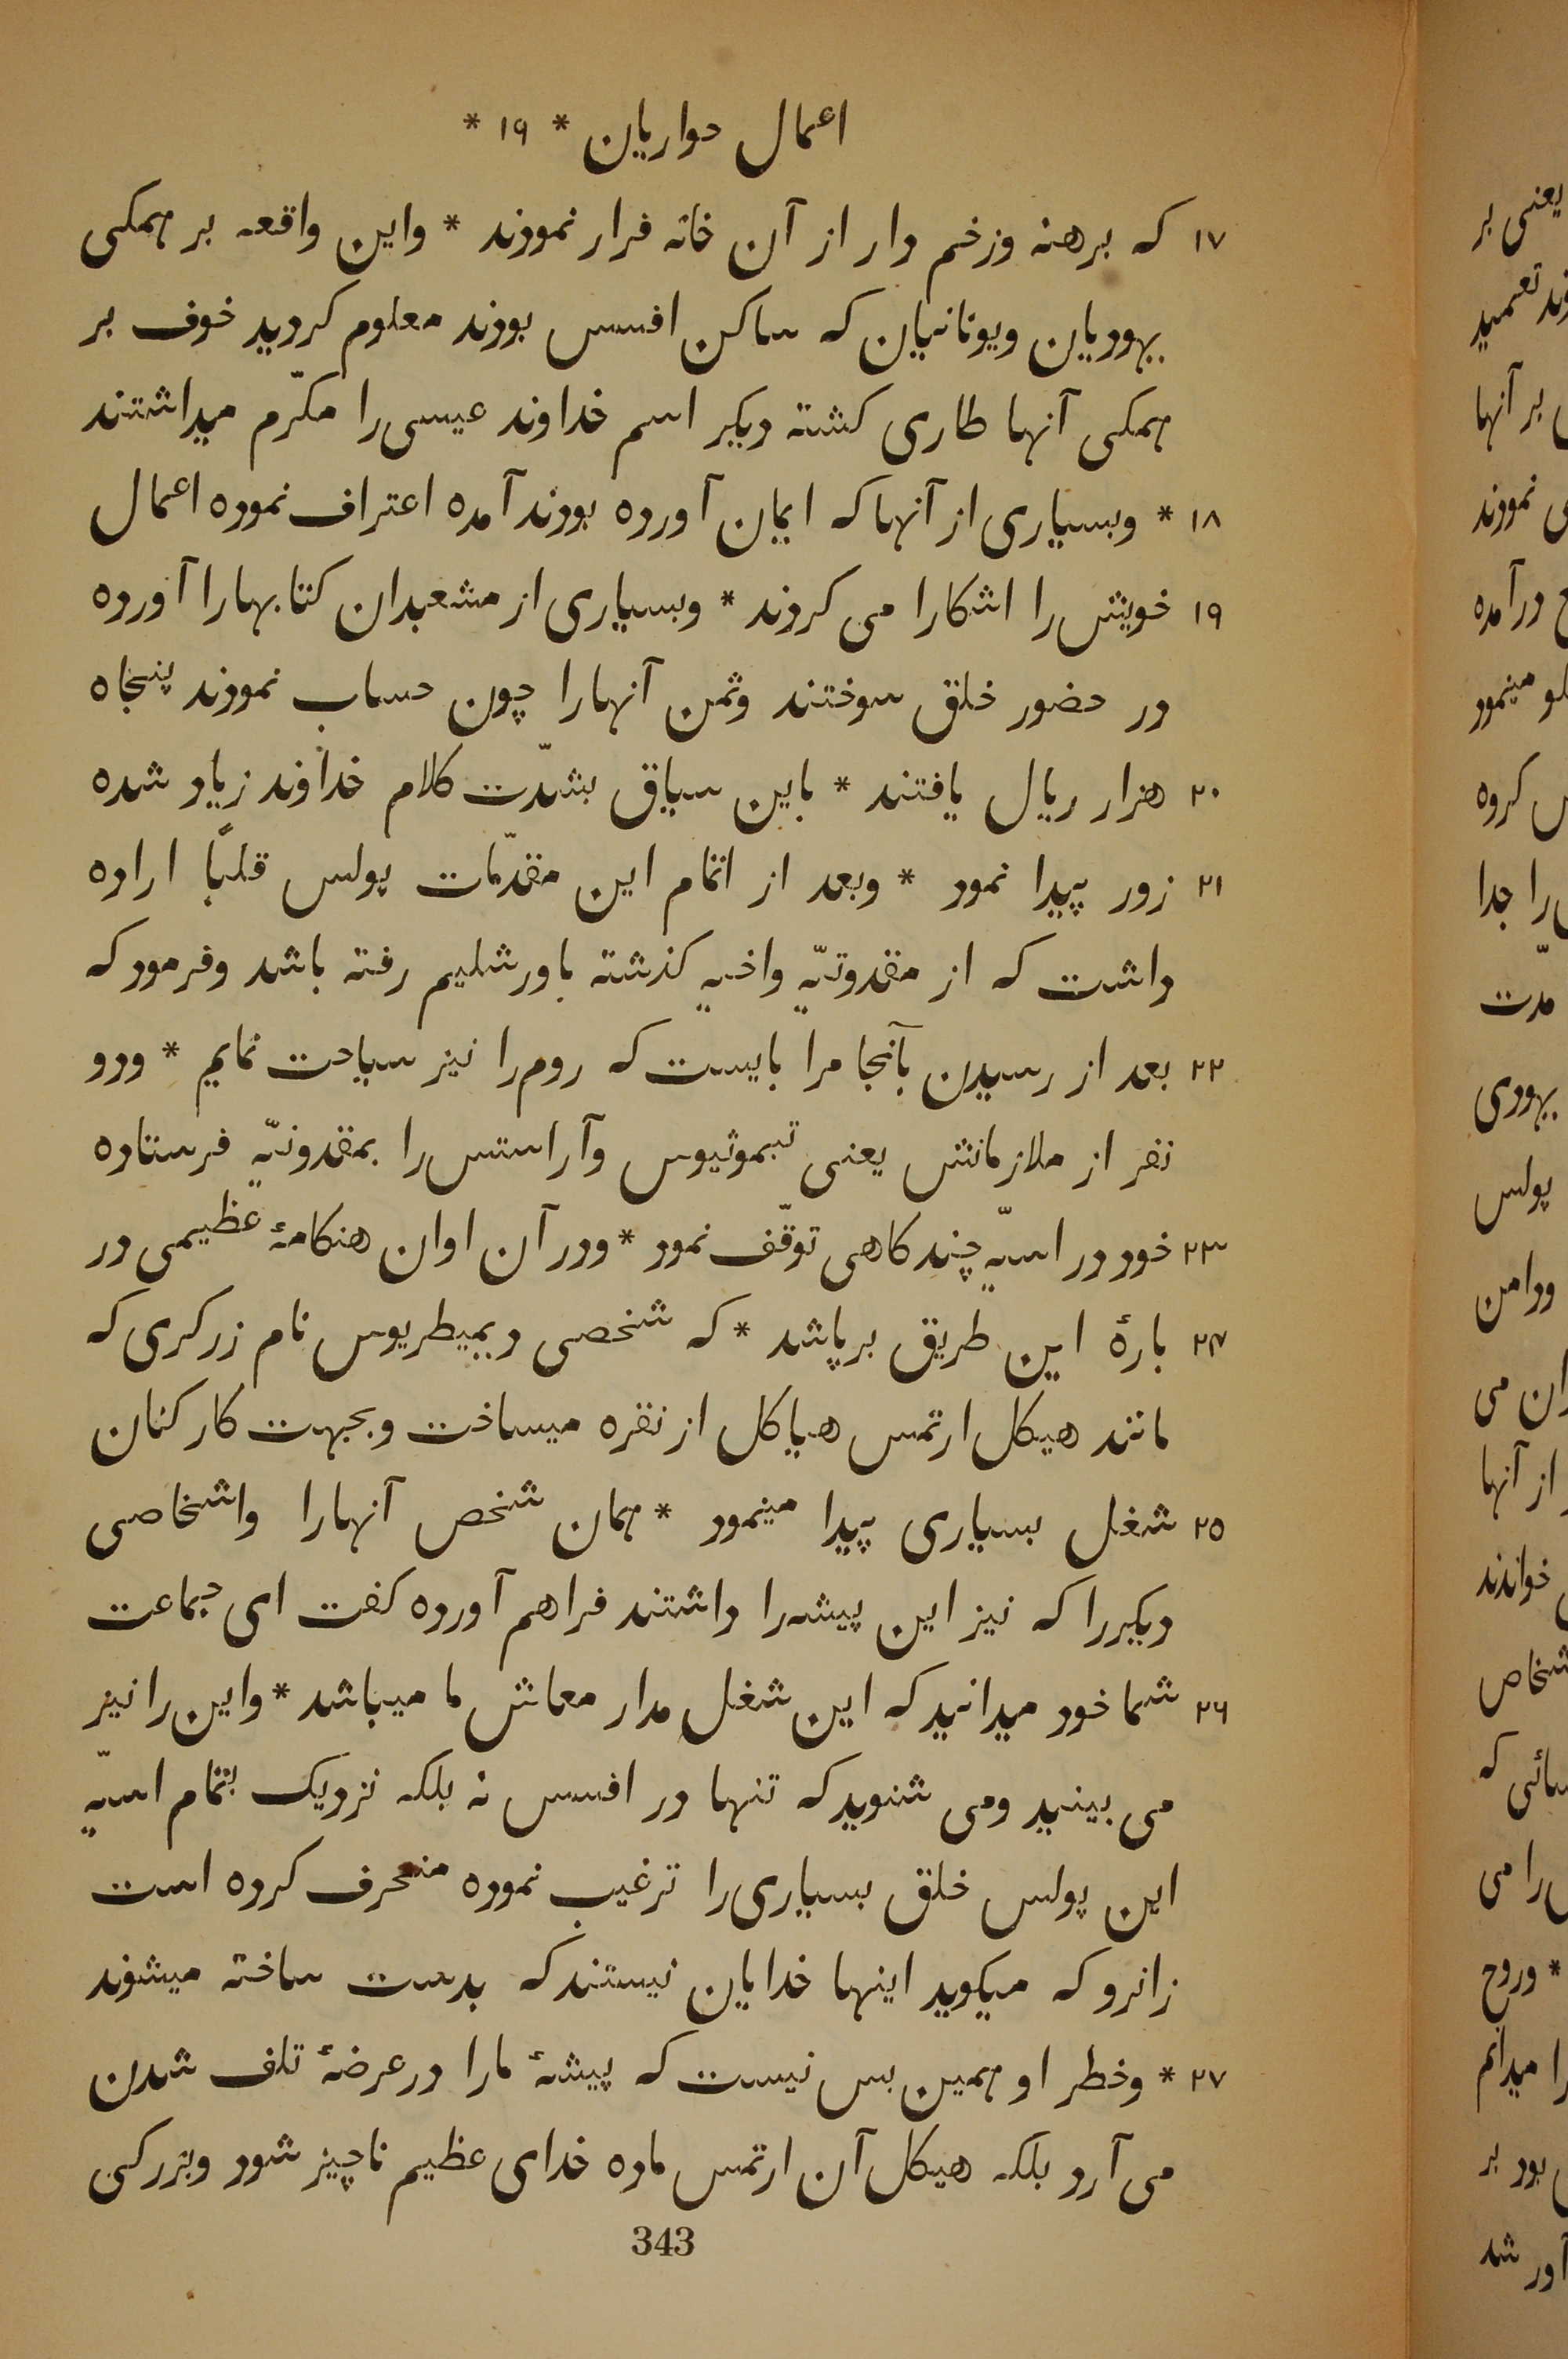 اعمال حواریان * ١٩ *
١٧ که برهنه وزخم دار از آن خانه فرار نمودند * واین واقعه بر همکی
یهودیان ویونانیان که ساکن افسس بودند معلوم کردید خوف بر
همکی آنها طاری کشته دیکر اسم خداوند عیسی را مکرّم میداشتند
١٨ * وبسیاری از آنها که ایمان آورده بودند آمده اعتراف نموده اعمال
١٩ خویش را اشکارا می کردند * وبسیاری از مشعبدان کتابها را آورده
در حضور خلق سوختند وثمن آنها را چون حساب نمودند پنجاه
٢٠ هزار ریال یافتند * باین سیاق بشدّت کلام خداوند زیاد شده
٢١ زور پیدا نمود * وبعد از اتمام این مقدّمات پولس قلبًا اراده
داشت که از مقدونیّه واخیه کذشته باورشلیم رفته باشد وفرمود که
٢٢ بعد از رسیدن بآنجا مرا بایست که روم را نیز سیاحت نمایم * ودو
نفر از ملازمانش یعنی تیموثیوس وآراستس را بمقدونیّه فرستاده
٢٣ خود در اسیّه چند کاهی توقّف نمود * ودر آن اوان هنکامهٔ عظیمی در
٢٤ بارهٔ این طریق برپاشد * که شخصی دیمیطریوس نام زرکری که
مانند هیکل ارتمس هیاکل از نقره میساخت وبجهت کارکنان
٢٥ شغل بسیاری پیدا مینمود * همان شخص آنها را واشخاصی
دیکر را که نیز این پیشه را داشتند فراهم آورده کفت ای جماعت
٢٦ شما خود میدانید که این شغل مدار معاش ما میباشد * واین را نیز
می بینید ومی شنوید که تنها در افسس نه بلکه نزدیک بتمام اسیّه
این پولس خلق بسیاری را ترغیب نموده منحرف کرده است
زانرو که میکوید اینها خدایان نیستند که بدست ساخته میشوند
٢٧ * وخطر او همین بس نیست که پیشهٔ ما را در عرضهٔ تلف شدن
می آرد بلکه هیکل آن ارتمس ماده خدای عظیم ناچیز شود وبزرکی
343
یعنی بر
تعمید
بر آنها
نمودند
درآمده
مینمود
کروه
را جدا
مدّت
یهودی
پولس
ودامن
ان می
از آنها
خواندند
شخاص
سائی که
را می
* وروح
را میدانم
بود بر
آور شد